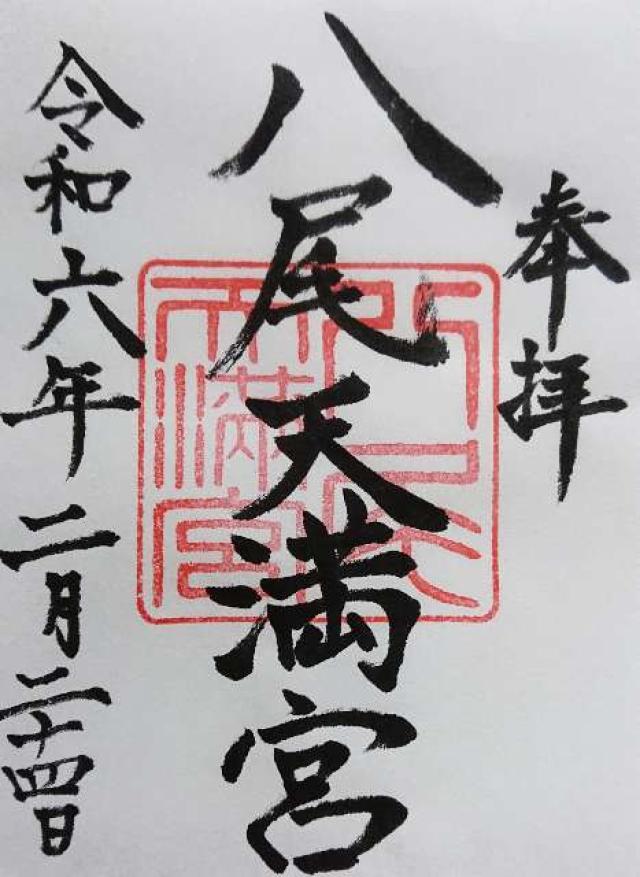 奉拝
八尾天満宮
令和六年二月二十四日
八尾天満宮